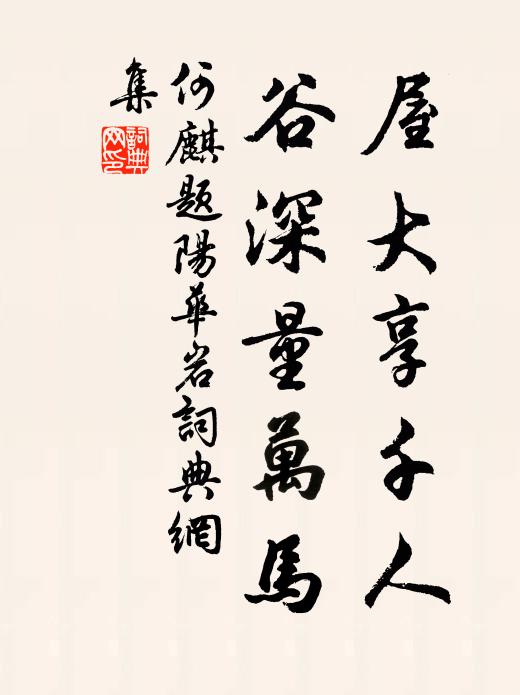 屋大享千人
谷深量萬馬
何麒題陽華岩詞典網
集
詞典网印